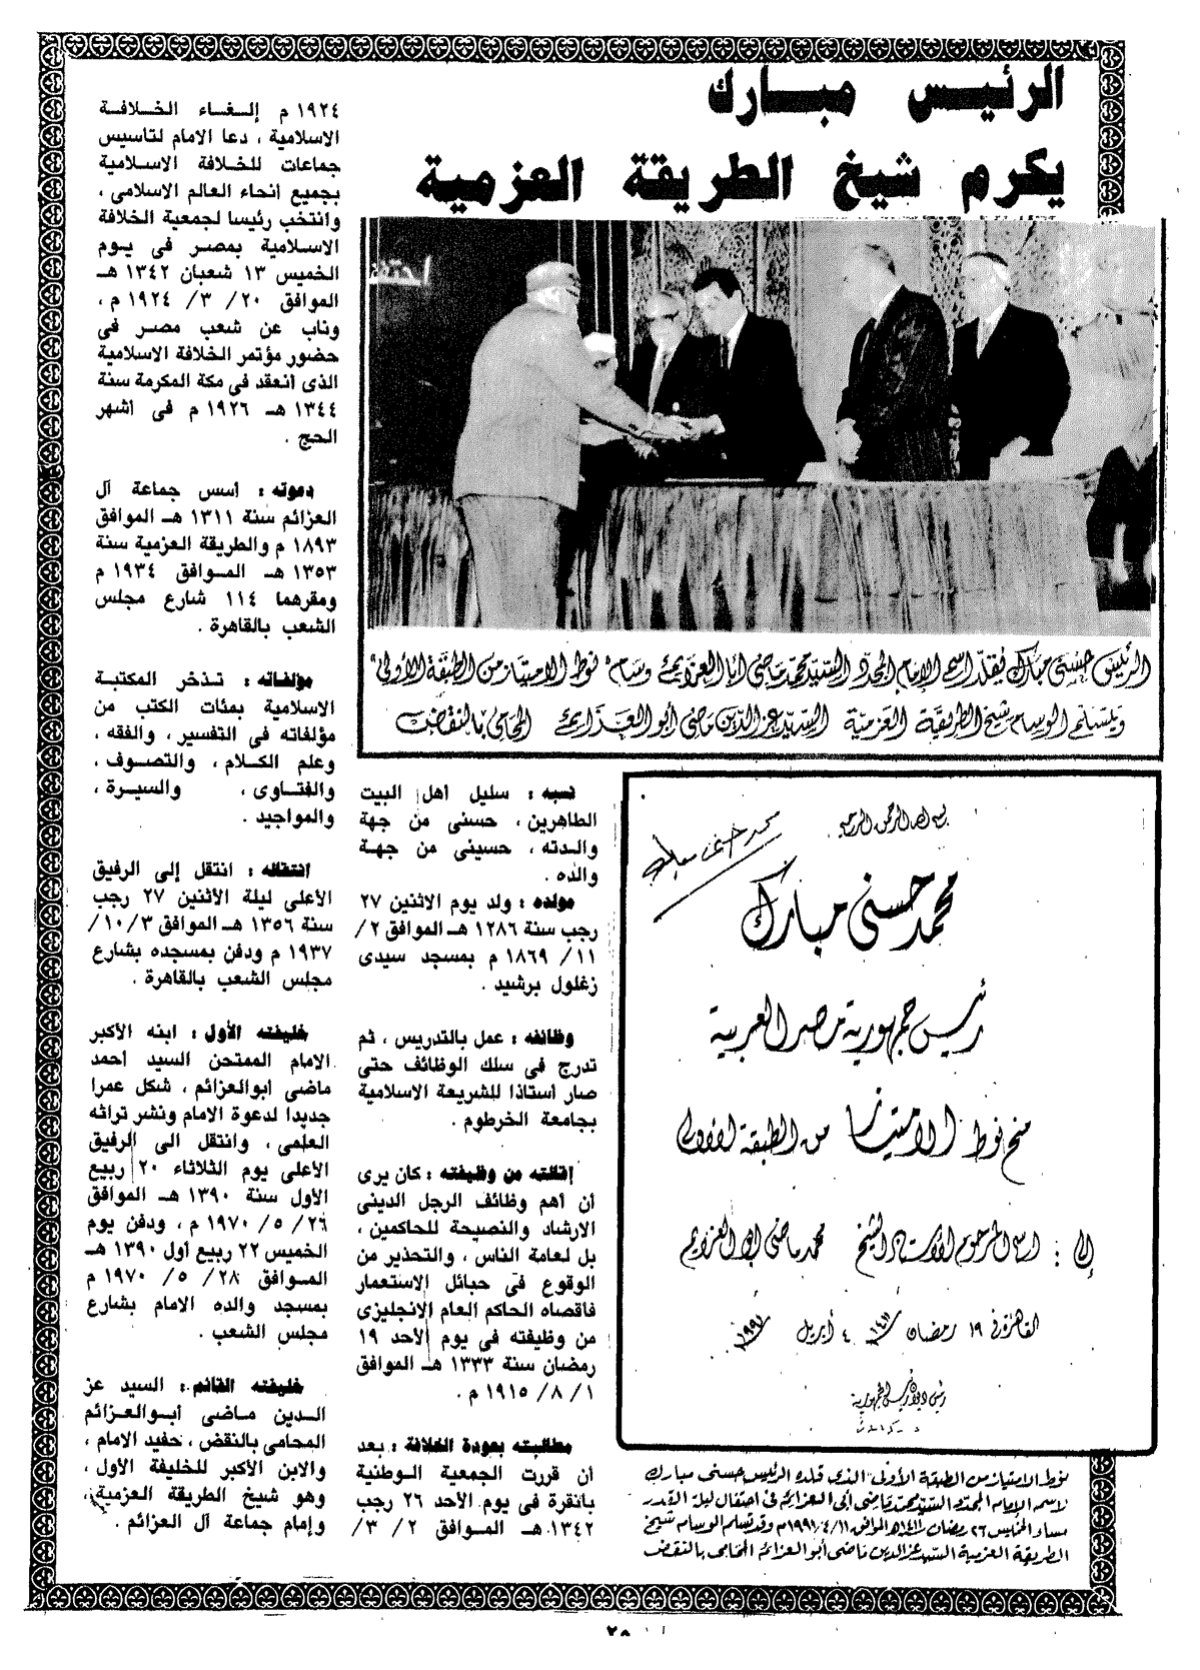 الرئيس مبارك
يكرم شيخ الطريقة العزمية
احتفـ
الرئيس حسنى مبارك يقلد اسم الإمام المجدد السيد محمد ماضى أبا العزائم وسام "نوط الامتياز من الطبقة الأولى"
ويتسلم الوسام شيخ الطريقة العزمية السيد عز الدين ماضى أبو العزائم المحامى بالنقض
بسم الله الرحمن الرحيم
محمد حسنى مبارك
محمد حسنى مبارك
رئيس جمهورية مصر العربية
منح نوط الامتياز من الطبقة الأولى
إلى : اسم المرحوم الأستاذ الشيخ محمد ماضى أبو العزايم
القاهرة فى ١٩ رمضان ١٤١١ ٤ أبريل ١٩٩١
رئيس ديوان رئيس الجمهورية
نوط الامتياز من الطبقة الأولى الذى قلده الرئيس حسنى مبارك
لاسم الإمام المجدد السيد محمد ماضى أبى العزائم فى احتفال ليلة القدر
مساء الخميس ٢٦ رمضان ١٤١١هـ الموافق ١٩٩١/٤/١١م وقد تسلم الوسام شيخ
الطريقة العزمية السيد عز الدين ماضى أبو العزائم المحامى بالنقض
نسبه : سليل أهل البيت
الطاهرين ، حسنى من جهة
والدته ، حسينى من جهة
والده .
مولده : ولد يوم الاثنين ٢٧
رجب سنة ١٢٨٦ هـ الموافق ٢/
١١/ ١٨٦٩ م بمسجد سيدى
زغلول برشيد .
وظائفه : عمل بالتدريس ، ثم
تدرج فى سلك الوظائف حتى
صار أستاذا للشريعة الاسلامية
بجامعة الخرطوم .
إقالته من وظيفته : كان يرى
أن أهم وظائف الرجل الدينى
الارشاد والنصيحة للحاكمين ،
بل لعامة الناس ، والتحذير من
الوقوع فى حبائل الاستعمار
فأقصاه الحاكم العام الإنجليزى
من وظيفته فى يوم الأحد ١٩
رمضان سنة ١٣٣٣ هـ الموافق
١/ ٨/ ١٩١٥ م .
مطالبته بعودة الخلافة : بعد
أن قررت الجمعية الوطنية
بأنقرة فى يوم الأحد ٢٦ رجب
١٣٤٢ هـ الموافق ٢/ ٣/
١٩٢٤ م إلغاء الخلافة
الاسلامية ، دعا الامام لتأسيس
جماعات للخلافة الاسلامية
بجميع أنحاء العالم الاسلامى ،
وانتخب رئيسا لجمعية الخلافة
الاسلامية بمصر فى يوم
الخميس ١٣ شعبان ١٣٤٢ هـ
الموافق ٢٠/ ٣/ ١٩٢٤ م ،
وناب عن شعب مصر فى
حضور مؤتمر الخلافة الاسلامية
الذى انعقد فى مكة المكرمة سنة
١٣٤٤ هـ ١٩٢٦ م فى أشهر
الحج .
دعوته : أسس جماعة آل
العزائم سنة ١٣١١ هـ الموافق
١٨٩٣ م والطريقة العزمية سنة
١٣٥٣ هـ الموافق ١٩٣٤ م
ومقرهما ١١٤ شارع مجلس
الشعب بالقاهرة .
مؤلفاته : تذخر المكتبة
الاسلامية بمئات الكتب من
مؤلفاته فى التفسير ، والفقه ،
وعلم الكلام ، والتصوف ،
والفتاوى ، والسيرة ،
والمواجيد .
انتقاله : انتقل إلى الرفيق
الأعلى ليلة الأثنين ٢٧ رجب
سنة ١٣٥٦ هـ الموافق ٣/١٠/
١٩٣٧ م ودفن بمسجده بشارع
مجلس الشعب بالقاهرة .
خليفته الأول : ابنه الأكبر
الامام الممتحن السيد أحمد
ماضى ابوالعزائم ، شكل عمرا
جديدا لدعوة الامام ونشر تراثه
العلمى ، وانتقل الى الرفيق
الأعلى يوم الثلاثاء ٢٠ ربيع
الأول سنة ١٣٩٠ هـ الموافق
٢٦/ ٥/ ١٩٧٠ م ، ودفن يوم
الخميس ٢٢ ربيع أول ١٣٩٠ هـ
الموافق ٢٨/ ٥/ ١٩٧٠ م
بمسجد والده الامام بشارع
مجلس الشعب .
خليفته القائم : السيد عز
الدين ماضى أبوالعزائم
المحامى بالنقض ، حفيد الامام ،
والابن الأكبر للخليفة الأول ،
وهو شيخ الطريقة العزمية ،
وإمام جماعة آل العزائم .
٢٥